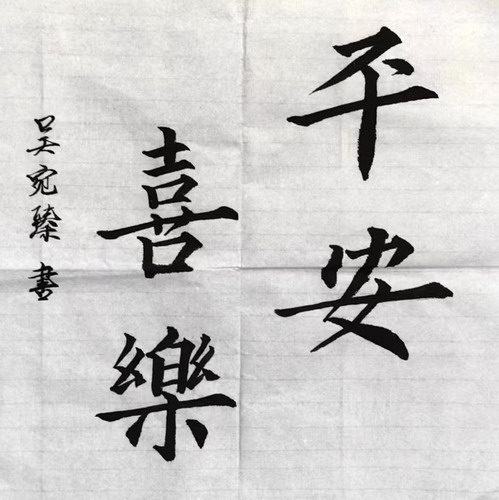 平安
喜樂
吳宛臻書